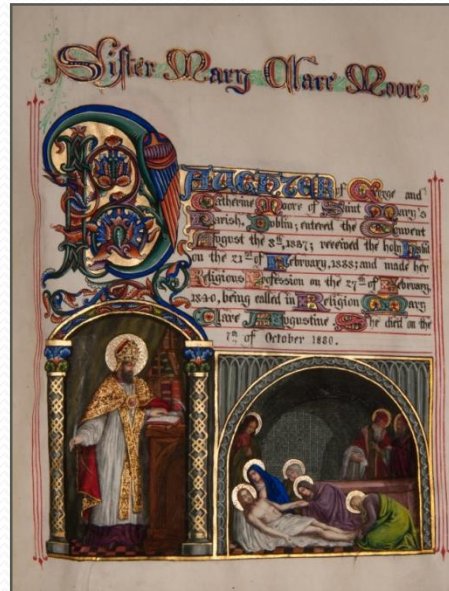 Sister Mary Clare Moore,
DAUGHTER of George and
Catherine Moore of Saint Mary's
Parish, Dublin; entered the Convent
August the 8th, 1837; received the holy Habit
on the 21st of February, 1838; and made her
Religious Profession on the 27th of February,
1840, being called in Religion Mary
Clare Augustine She died on the
7th of October 1880.